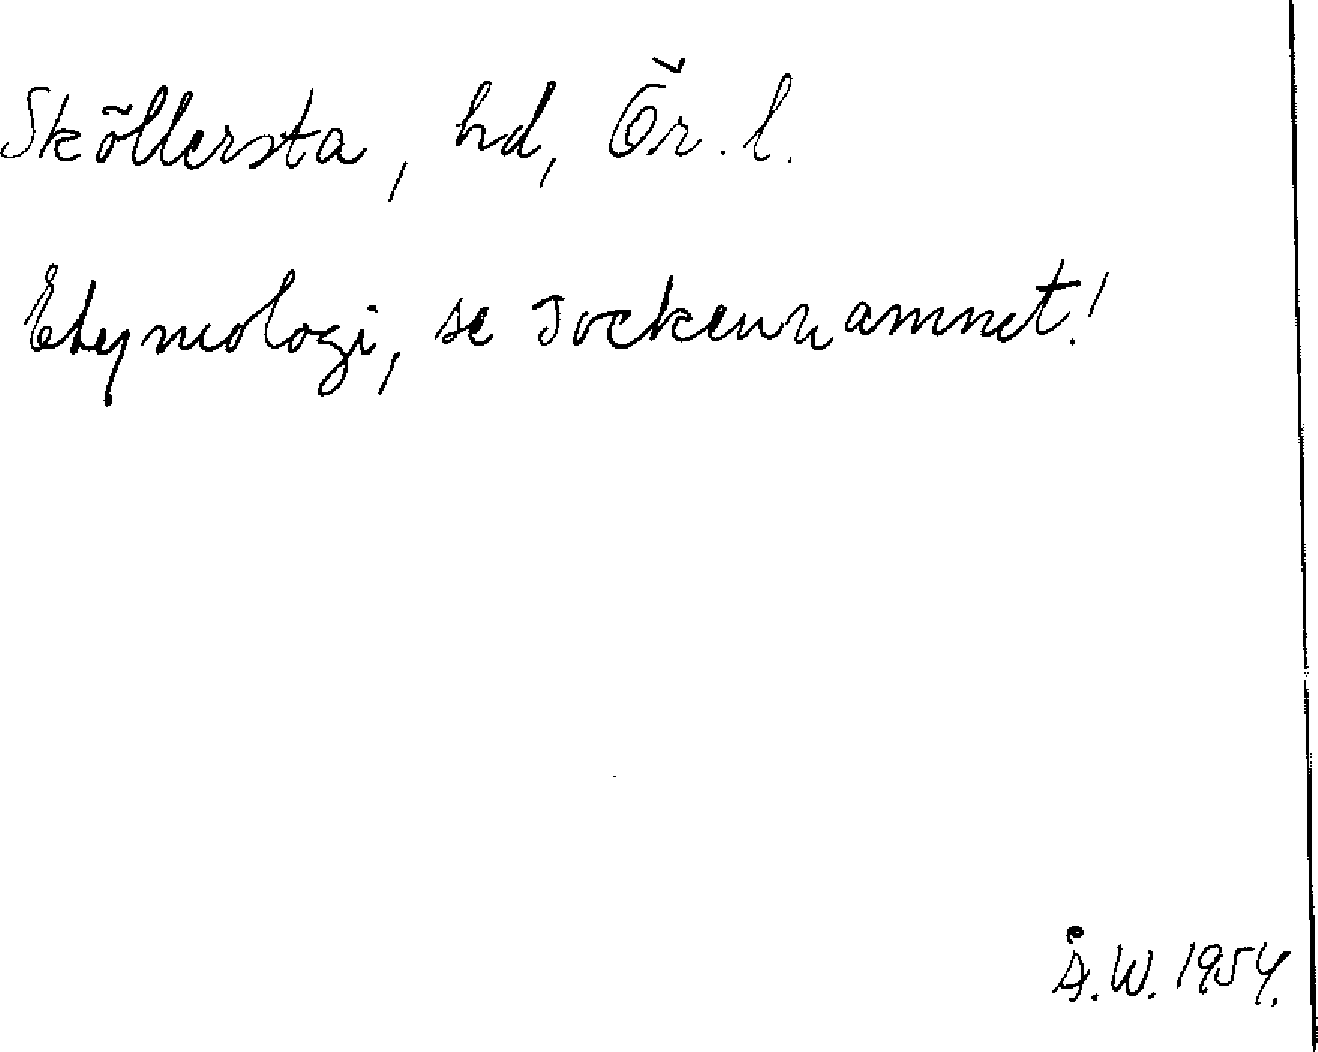 Sköllersta, hd, Ör. l.
Etymologi, se sockennamnet!
Å.W. 1954.